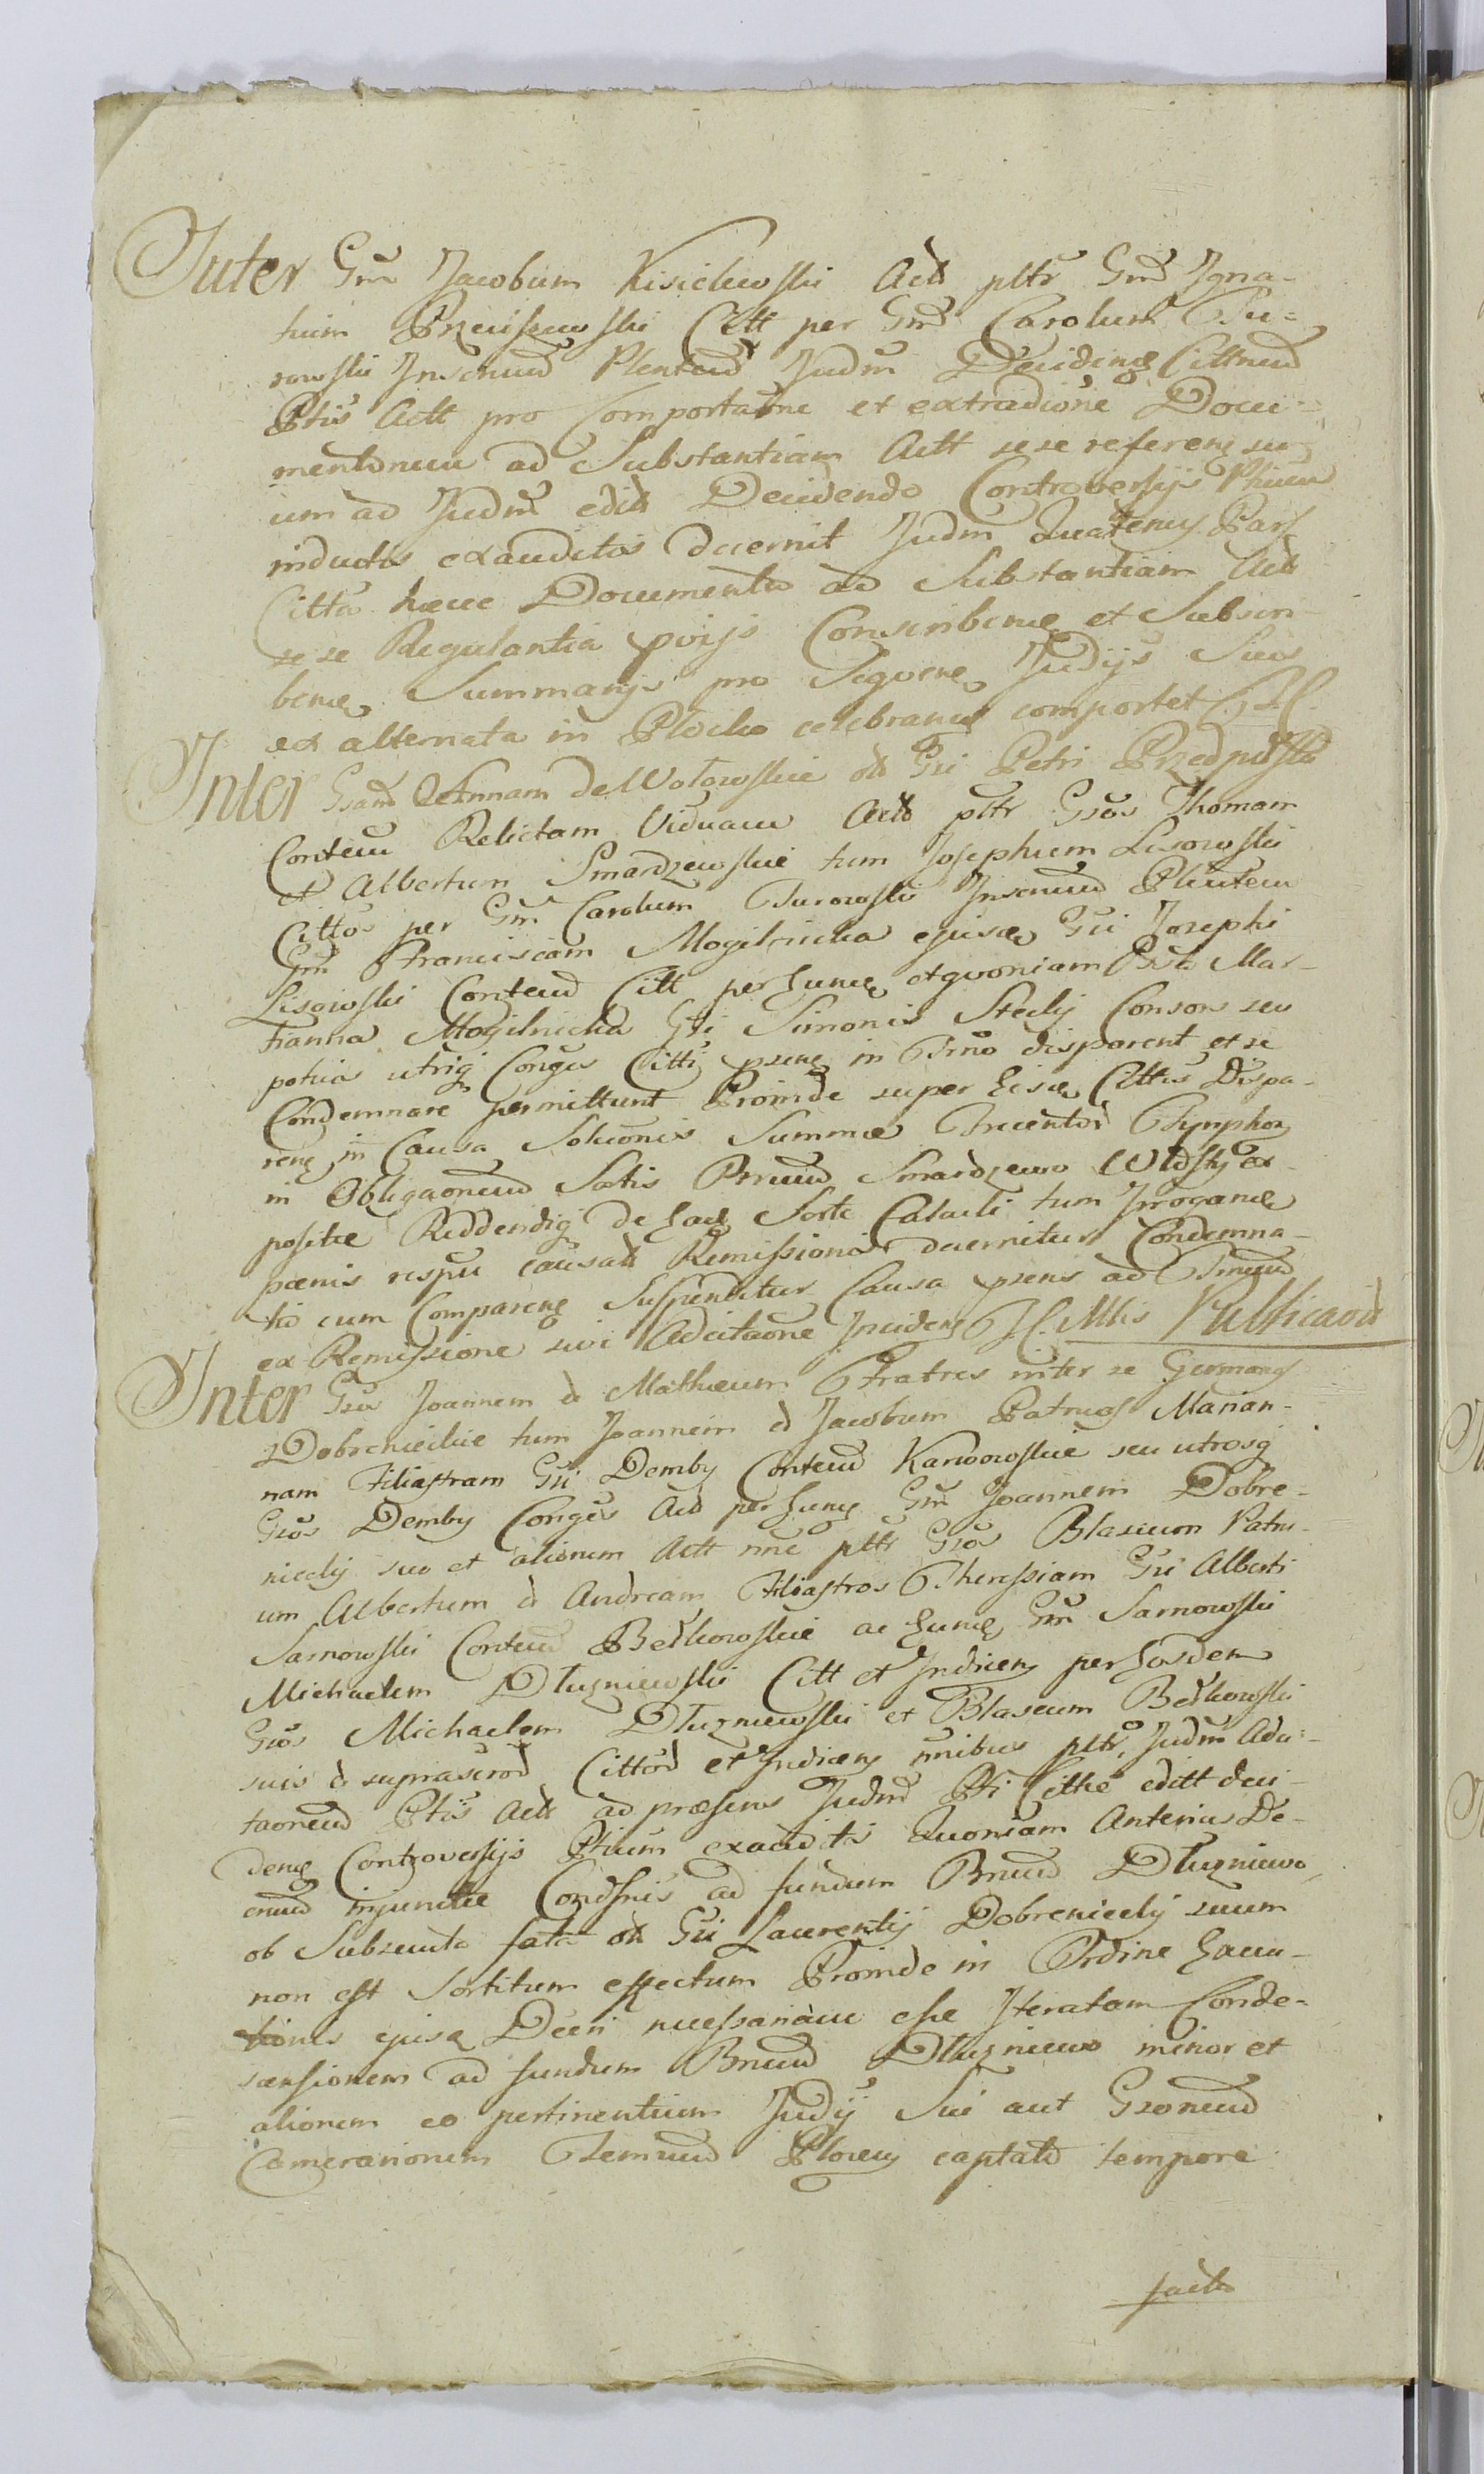 Inter Gm̃ Jacobum Kisielewski Act pltr̃ Gm̃ Igna-
tium Przeciszewski Citt per Gm̃ Carolum Tu-
rowski Plentem Judm̃ Decidend Cittnem
Ptis Actt pro Comportaõne et extradiõne Docu-
mentorum ad Substantiam Actt sese referen
um ad Judm̃ edit Decidendo Controversijs Ptium
inductis exauditis decernit Judm̃ Quatenus Pars
Citta haec Documenta ad Substantiam Act
sese Regulantia Conscribend et Subscri-
bend Summarijs pro Judijs Suis
ex alternata in Plocko celebrand comportet
Inter Gsam Annam de Wołowskie olt Gsi Petri Przedpełski
Contem Relictam Viduam Act pltr Gsos Thomam
et Albertum Smardzewskie tum Josephum Lisowski
Cittos per Gm̃ Carolum Turowski Plentem
Gm̃ Franciscam Mogilnicka ejusd Gsi Josephi
Lisowski Contem Citt per hunc et quoniam Marianna
Mogilnicka Gsi Simonis Stecky Consors seu
potius utriq Conges Citti in Trno disparent et se
Condemnare permittunt Proinde super eisd Cittis Dispa-
ren in Causa Soluõnis Summae Trecentor Tynphor
in Obligaõnem Sortis Smardzewo
positae Reddendis de hac Sorte Calculi tum Irrogand
poenis respu causat Remissionis decernitur Condemna-
tio cum Comparen Suspenditur Causa praens ad Trmum
ex Remissione sive Adcitaõne Inciden Publicavit
Inter Gsos Joannem et Mathaeum Fratres inter se Germanos
Dobrenieckie tum Joannem et Jacobum Patruos Marian-
nam Filiastram Gsi Demby Contem Karwowskie seu utrosq
Gsos Demby Conges Act per hunc Gm̃ Joannem Dobre-
niecky suo et aliorum Actt nne pltr Gsos Blasium Patru-
um Albertum et Andream Filiastros Theressiam Gsi Alberti
Sarnowski Contem Bełkowskie ac hunc Gm̃ Sarnowski
Michaelem Dłuzniewski Citt et Indicen per hosdem
Gsos Michaelem Dłuzniewski et Blasium Bełkowski
suis et suprascrod Cittod et Indicen nnibus pltr Judm̃ Adci-
taõnem Ptis Act ad praesens Judm̃ Pti Cittae editt deci-
dend Controversijs Ptium exauditis Quoniam Anterius De-
cretum injunctae Condsnis ad fundum Bnrum Dłuzniewo,
ob Subsecuta fata olt Gsi Laurentij Dobreniecky suum
non est Sortitum effectum Proinde in Ordine Execu-
tionis ejusd Decri necessariam esse Iteratam Conde-
scensionem ad fundum Bnrum Dłuzniewo minor et
aliorum eo pertinentium Judij Sui aut Gsorum
Camerariorum Terrum Plocen captato tempore
facto